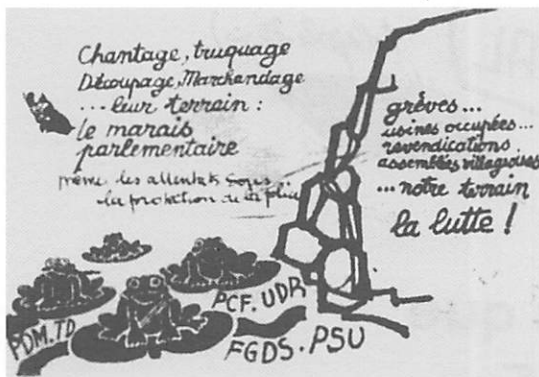 Chantage, truquage
Découpage, Marchandage
... leur terrain :
le marais
parlementaire
même les attentats sous
la protection de la police
grèves...
usines occupées...
revendications.
assemblées villageoises
... notre terrain
la lutte !
PDM.TD
PCF.UDR
FGDS.PSU